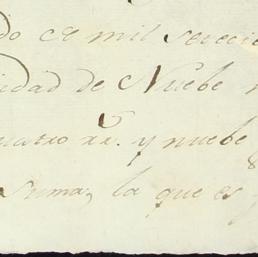 do ce mil setecie
idad de Nuebe
uatro rs. y nuebe
suma, la que es